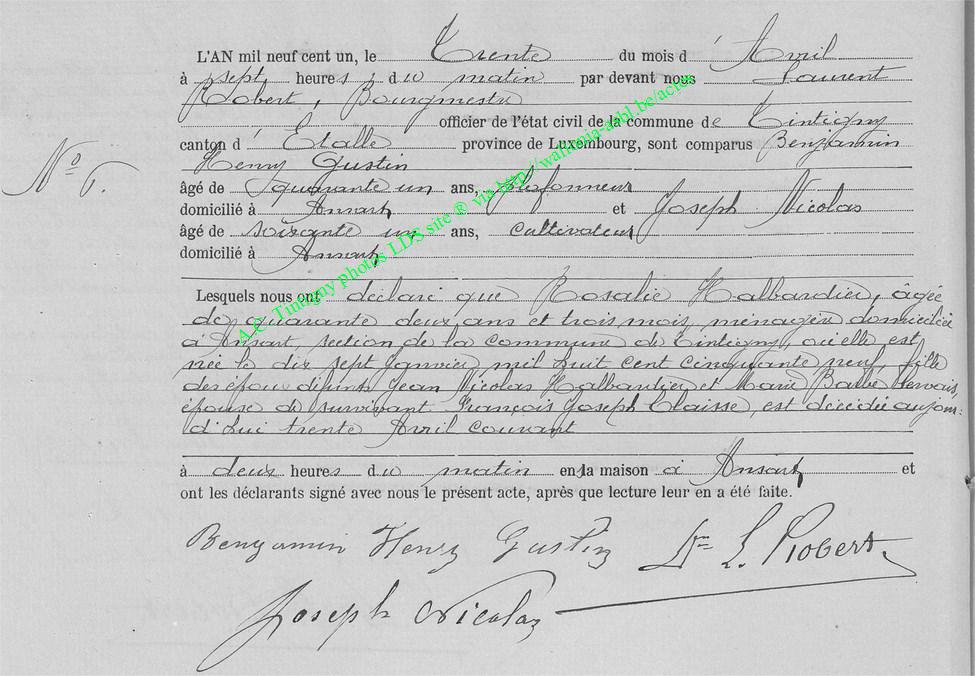 L'AN mil neuf cent un, le Trente du mois d' Avril
à sept heures du matin par devant nous Laurent
Robert, Bourgmestre
officier de l'état civil de la commune de Tintigny
canton d' Etalle province de Luxembourg, sont comparus Benjamin
Henry Gustin
N° 6.
âgé de quarante un ans,
domicilié à Ansart et Joseph Nicolas
âgé de soixante un ans, cultivateur
domicilié à Ansart
A.C. Tintigny photos LDS site ® via http://wallonia-asbl.be/actes
Lesquels nous ont déclaré que Rosalie Halbardier, âgée
de quarante deux ans et trois mois, ménagère domiciliée
à Ansart, section de la commune de Tintigny, où elle est
née le dix sept Janvier mil huit cent cinquante neuf, fille
des époux défunts Jean Nicolas Halbardier et Marie Barbe Gervais,
épouse de survivant François Joseph Claisse, est décédée aujour=
d'hui trente Avril courant
à deux heures du matin en la maison à Ansart et
ont les déclarants signé avec nous le présent acte, après que lecture leur en a été faite.
Benjamin Henry Gustin L. Robert
Joseph Nicolas